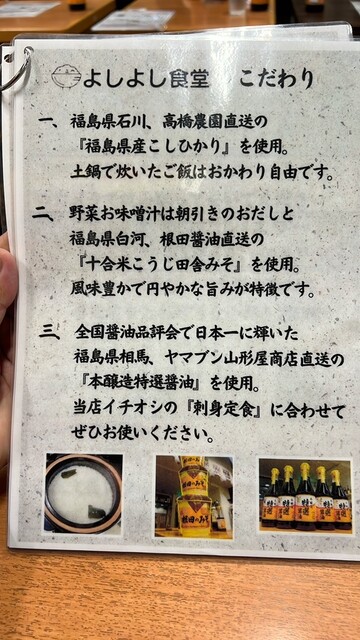 よしよし食堂 こだわり
一、福島県石川、高橋農園直送の
『福島県産こしひかり』を使用。
土鍋で炊いたご飯はおかわり自由です。
二、野菜お味噌汁は朝引きのおだしと
福島県白河、根田醤油直送の
『十合米こうじ田舎みそ』を使用。
風味豊かで円やかな旨みが特徴です。
三、全国醤油品評会で日本一に輝いた
福島県相馬、ヤマブン山形屋商店直送の
『本醸造特選醤油』を使用。
当店イチオシの『刺身定食』に合わせて
ぜひお使いください。
根田のみそ